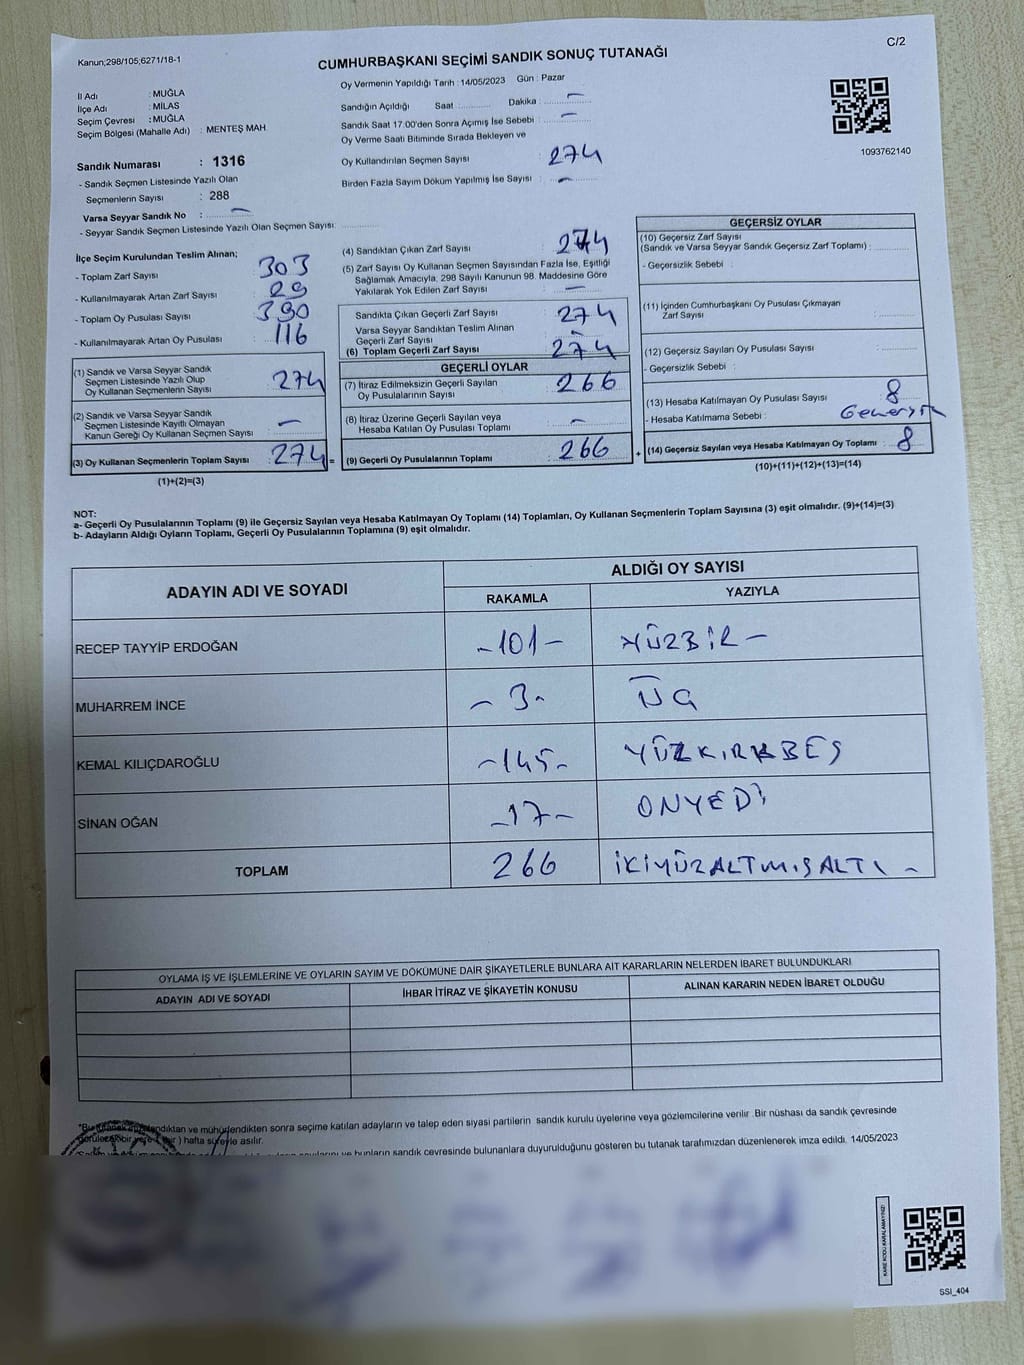 C/2
Kanun;298/105;6271/18-1
CUMHURBAŞKANI SEÇİMİ SANDIK SONUÇ TUTANAĞI
Oy Vermenin Yapıldığı Tarih : 14/05/2023 Gün : Pazar
İl Adı : MUĞLA
İlçe Adı : MİLAS
Seçim Çevresi : MUĞLA
Seçim Bölgesi (Mahalle Adı) : MENTEŞ MAH.
Sandık Numarası : 1316
- Sandık Seçmen Listesinde Yazılı Olan
Seçmenlerin Sayısı : 288
Varsa Seyyar Sandık No : –
- Seyyar Sandık Seçmen Listesinde Yazılı Olan Seçmen Sayısı:
Sandığın Açıldığı Saat Dakika : –
Sandık Saat 17.00'den Sonra Açımış İse Sebebi : –
Oy Verme Saati Bitiminde Sırada Bekleyen ve
Oy Kullandırılan Seçmen Sayısı : 274
Birden Fazla Sayım Döküm Yapılmış İse Sayısı : –
1093762140
İlçe Seçim Kurulundan Teslim Alınan;
- Toplam Zarf Sayısı : 303
- Kullanılmayarak Artan Zarf Sayısı : 29
- Toplam Oy Pusulası Sayısı : 390
- Kullanılmayarak Artan Oy Pusulası : 116
(1) Sandık ve Varsa Seyyar Sandık
Seçmen Listesinde Yazılı Olup
Oy Kullanan Seçmenlerin Sayısı : 274
(2) Sandık ve Varsa Seyyar Sandık
Seçmen Listesinde Kayıtlı Olmayan
Kanun Gereği Oy Kullanan Seçmen Sayısı : –
(3) Oy Kullanan Seçmenlerin Toplam Sayısı : 274 =
(1)+(2)=(3)
(4) Sandıktan Çıkan Zarf Sayısı : 274
(5) Zarf Sayısı Oy Kullanan Seçmen Sayısından Fazla İse, Eşitliği
Sağlamak Amacıyla, 298 Sayılı Kanunun 98. Maddesine Göre
Yakılarak Yok Edilen Zarf Sayısı : –
Sandıkta Çıkan Geçerli Zarf Sayısı : 274
Varsa Seyyar Sandıktan Teslim Alınan
Geçerli Zarf Sayısı : –
(6) Toplam Geçerli Zarf Sayısı : 274
GEÇERLİ OYLAR
(7) İtiraz Edilmeksizin Geçerli Sayılan
Oy Pusulalarının Sayısı : 266
(8) İtiraz Üzerine Geçerli Sayılan veya
Hesaba Katılan Oy Pusulası Toplamı : –
(9) Geçerli Oy Pusulalarının Toplamı : 266 +
GEÇERSİZ OYLAR
(10) Geçersiz Zarf Sayısı
(Sandık ve Varsa Seyyar Sandık Geçersiz Zarf Toplamı) :
- Geçersizlik Sebebi :
(11) İçinden Cumhurbaşkanı Oy Pusulası Çıkmayan
Zarf Sayısı :
(12) Geçersiz Sayılan Oy Pusulası Sayısı :
- Geçersizlik Sebebi :
(13) Hesaba Katılmayan Oy Pusulası Sayısı : 8
- Hesaba Katılmama Sebebi :
(14) Geçersiz Sayılan veya Hesaba Katılmayan Oy Toplamı : 8
(10)+(11)+(12)+(13)=(14)
NOT:
a- Geçerli Oy Pusulalarının Toplamı (9) ile Geçersiz Sayılan veya Hesaba Katılmayan Oy Toplamı (14) Toplamları, Oy Kullanan Seçmenlerin Toplam Sayısına (3) eşit olmalıdır. (9)+(14)=(3)
b- Adayların Aldığı Oyların Toplamı, Geçerli Oy Pusulalarının Toplamına (9) eşit olmalıdır.
ADAYIN ADI VE SOYADI ALDIĞI OY SAYISI
RAKAMLA YAZIYLA
RECEP TAYYİP ERDOĞAN –101– YÜZBİR –
MUHARREM İNCE –3– ÜÇ
KEMAL KILIÇDAROĞLU –145– YÜZKIRKBEŞ
SİNAN OĞAN –17– ONYEDİ
TOPLAM 266 İKİYÜZALTMIŞALTI –
OYLAMA İŞ VE İŞLEMLERİNE VE OYLARIN SAYIM VE DÖKÜMÜNE DAİR ŞİKAYETLERLE BUNLARA AİT KARARLARIN NELERDEN İBARET BULUNDUKLARI
ADAYIN ADI VE SOYADI İHBAR İTİRAZ VE ŞİKAYETİN KONUSU ALINAN KARARIN NEDEN İBARET OLDUĞU
ve mühürlendikten sonra seçime katılan adayların ve talep eden siyasi partilerin sandık kurulu üyelerine veya gözlemcilerine verilir .Bir nüshası da sandık çevresinde
) hafta süreyle asılır.
ve bunların sandık çevresinde bulunanlara duyurulduğunu gösteren bu tutanak tarafımızdan düzenlenerek imza edildi. 14/05/2023
KARE KODU KARALAMAYINIZ!
SSI_404